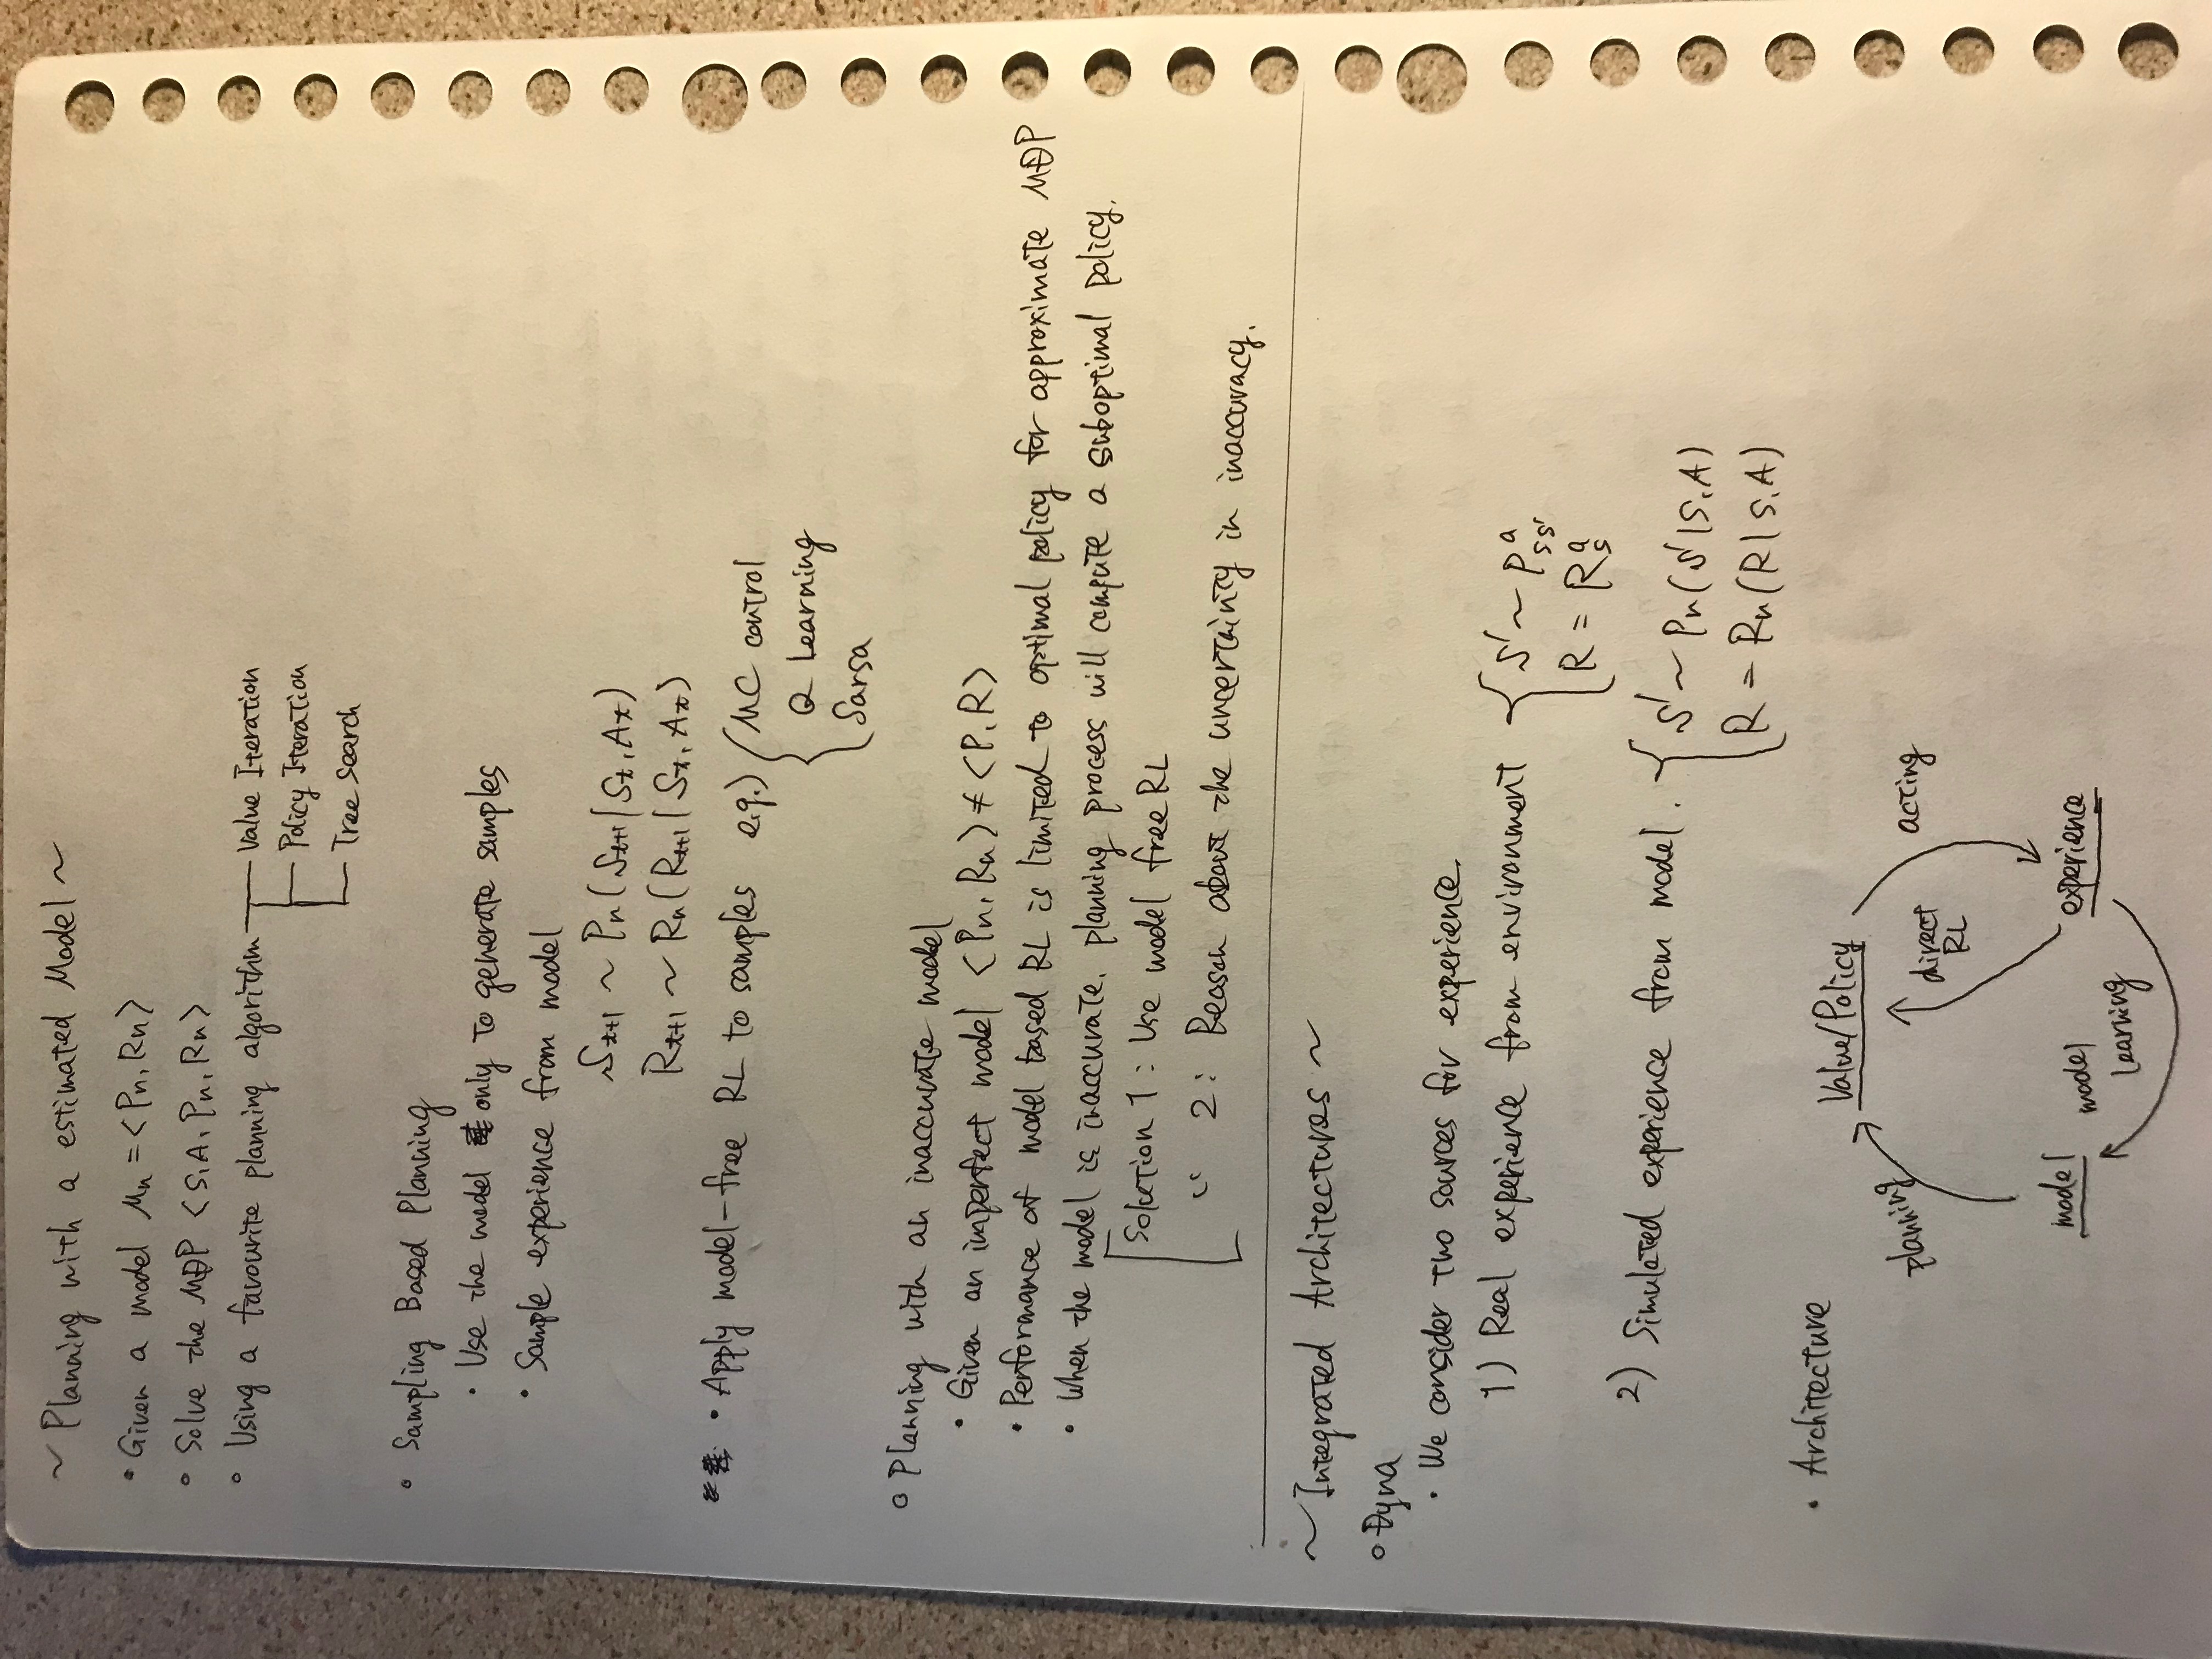 ~ Planning with a estimated Model ~
• Given a model Mn = <Pn, Rn>
• Solve the MDP <S, A, Pn, Rn>
• Using a favourite planning algorithm — Value Iteration
Policy Iteration
Tree Search
• Sampling Based Planning
• Use the model only to generate samples
• Sample experience from model
St+1 ~ Pn(St+1 | St, At)
Rt+1 ~ Rn(Rt+1 | St, At)
• Apply model-free RL to samples e.g.) { MC control
Q Learning
Sarsa
○ Planning with an inaccurate model
• Given an imperfect model <Pn, Rn> ≠ <P, R>
• Performance of model based RL is limited to optimal policy for approximate MDP
• When the model is inaccurate, planning process will compute a suboptimal policy.
Solution 1: Use model free RL
〃 2: Reason about the uncertainty in inaccuracy.
~ Integrated Architectures ~
○ Dyna
• We consider two sources for experience.
1) Real experience from environment { S' ~ P^a_ss'
R = R^a_s
2) Simulated experience from model. { S' ~ Pn(S' | S, A)
R = Rn(R | S, A)
• Architecture
Value/Policy
planning
acting
direct
RL
model
experience
model
Learning